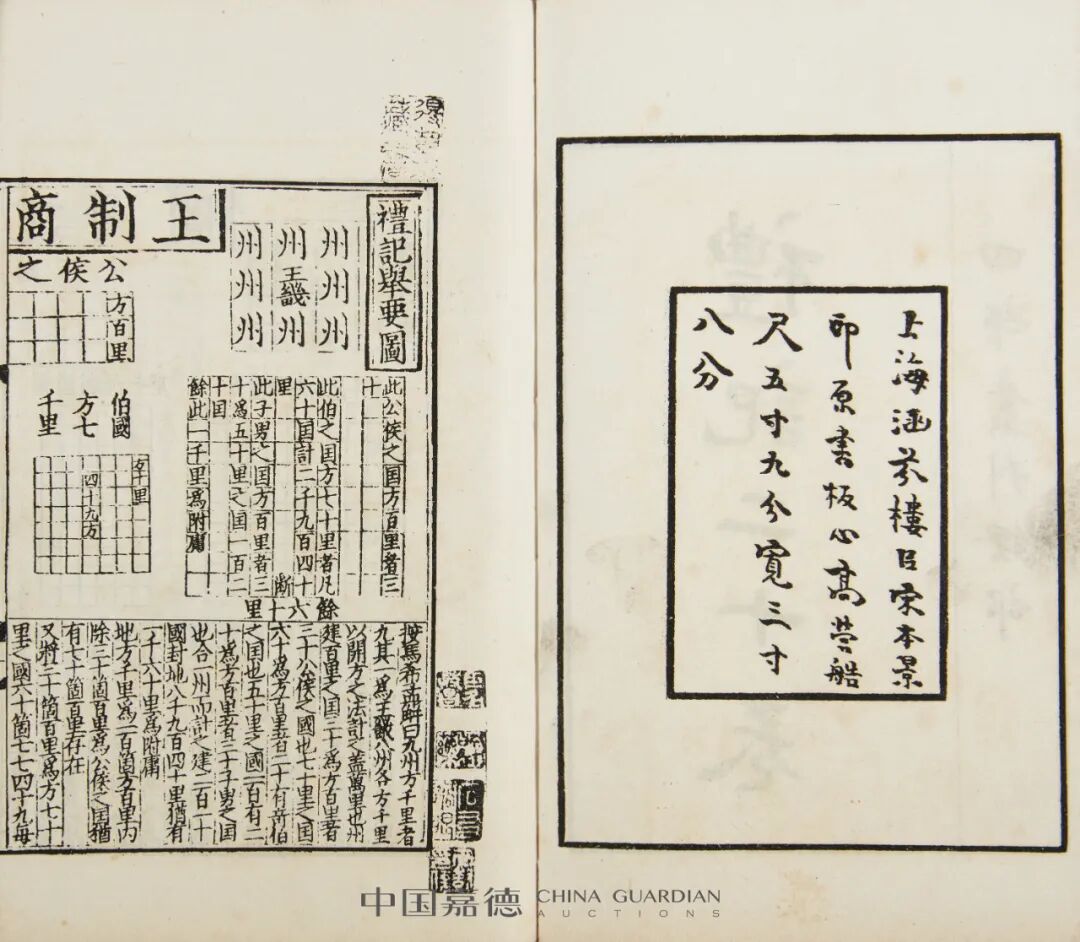 上海涵芬樓㠯宋本景
印原書板心髙營造
尺五寸九分寬三寸
八分
禮記舉要圖
州州州
州王畿州
州州州
王制商
公侯之
方百里
伯國
方七
千里
四十九方
此公侯之国方百里者三
十
此伯之国方七十里者凡
六十国計二千九百四十
里
此子男之国方百里者三
十爲五十里之国一百二
十国
餘此一千里爲附庸
餘六十里
按馬希孟解曰九州方千里者
九其一爲王畿八州各方千里
以開方之法計之盖萬里也州
建百里之国三十爲方百里者
三十公侯之國也七十里之国
六十爲方百里者二十有奇伯
之国也五十里之國一百有二
十爲方百里者三十子男之国
也合一州而計之建二百一十
國封地八千九百四十里猶有
一千六十里爲附庸
地方千里爲一百箇方百里内
除三十箇百里爲公侯之国猶
有七十箇百里存在
又將三十箇百里爲方七十
里之國六十箇七七四十九每
中国嘉德 CHINA GUARDIAN
AUCTIONS